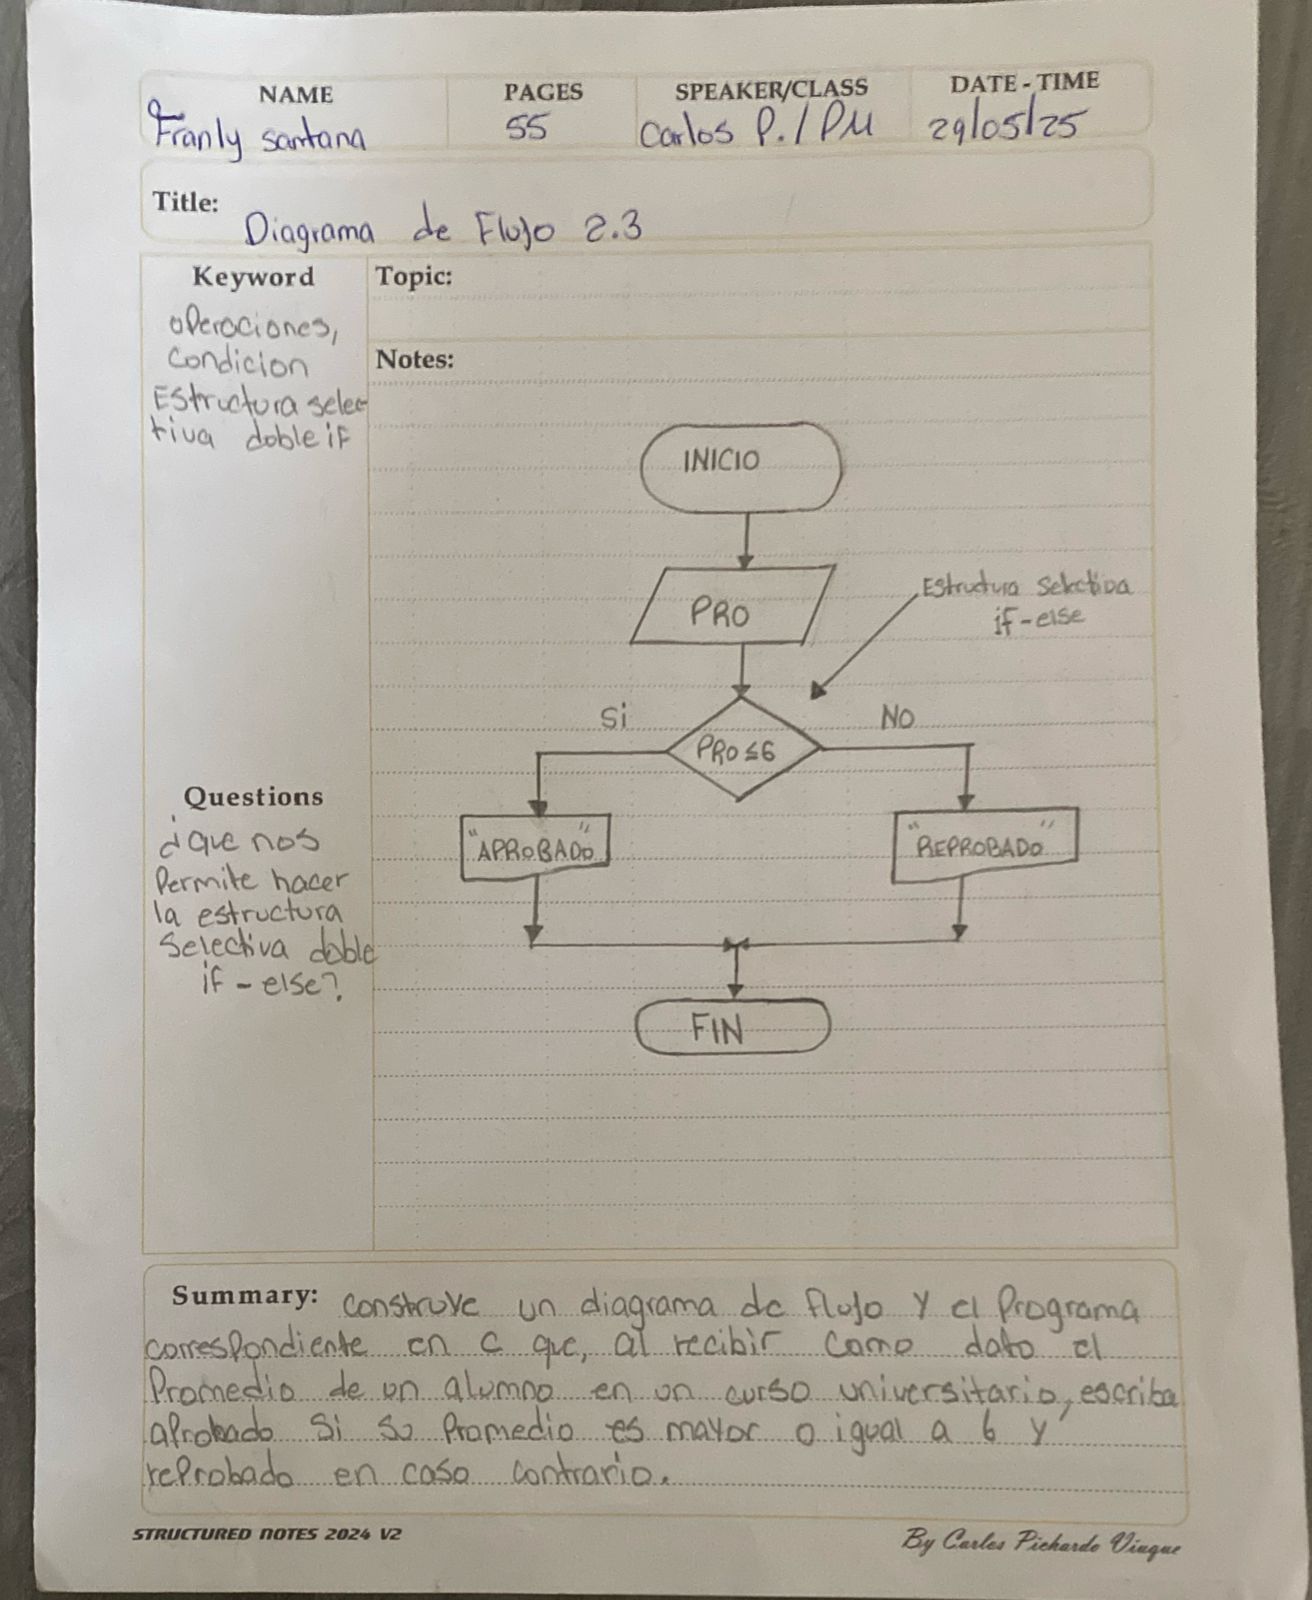 NAME
PAGES
SPEAKER/CLASS
DATE - TIME
Franly santana
55
Carlos P. / PM
29/05/25
Title:
Diagrama de Flujo 2.3
Keyword
operaciones,
Condicion
Estructura selec
tiva doble if
Topic:
Notes:
INICIO
PRO
Estructura Selectiva
if-else
Si
NO
PRO ≤ 6
"APROBADO"
"REPROBADO"
FIN
Questions
¿que nos
Permite hacer
la estructura
Selectiva doble
if - else?
Summary: construye un diagrama de flujo y el Programa
correspondiente en c que, al recibir como dato el
Promedio de un alumno en un curso universitario, escriba
aprobado si su Promedio es mayor o igual a 6 y
reprobado en caso contrario.
STRUCTURED NOTES 2024 V2
By Carlos Pichardo Viuque